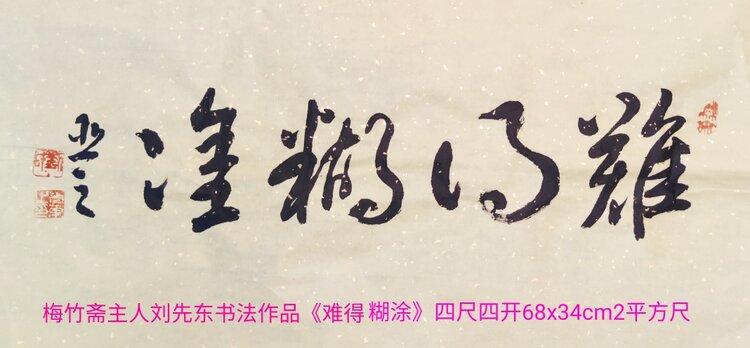 難得糊塗
梅竹斋主人刘先东书法作品《难得糊涂》四尺四开68x34cm2平方尺